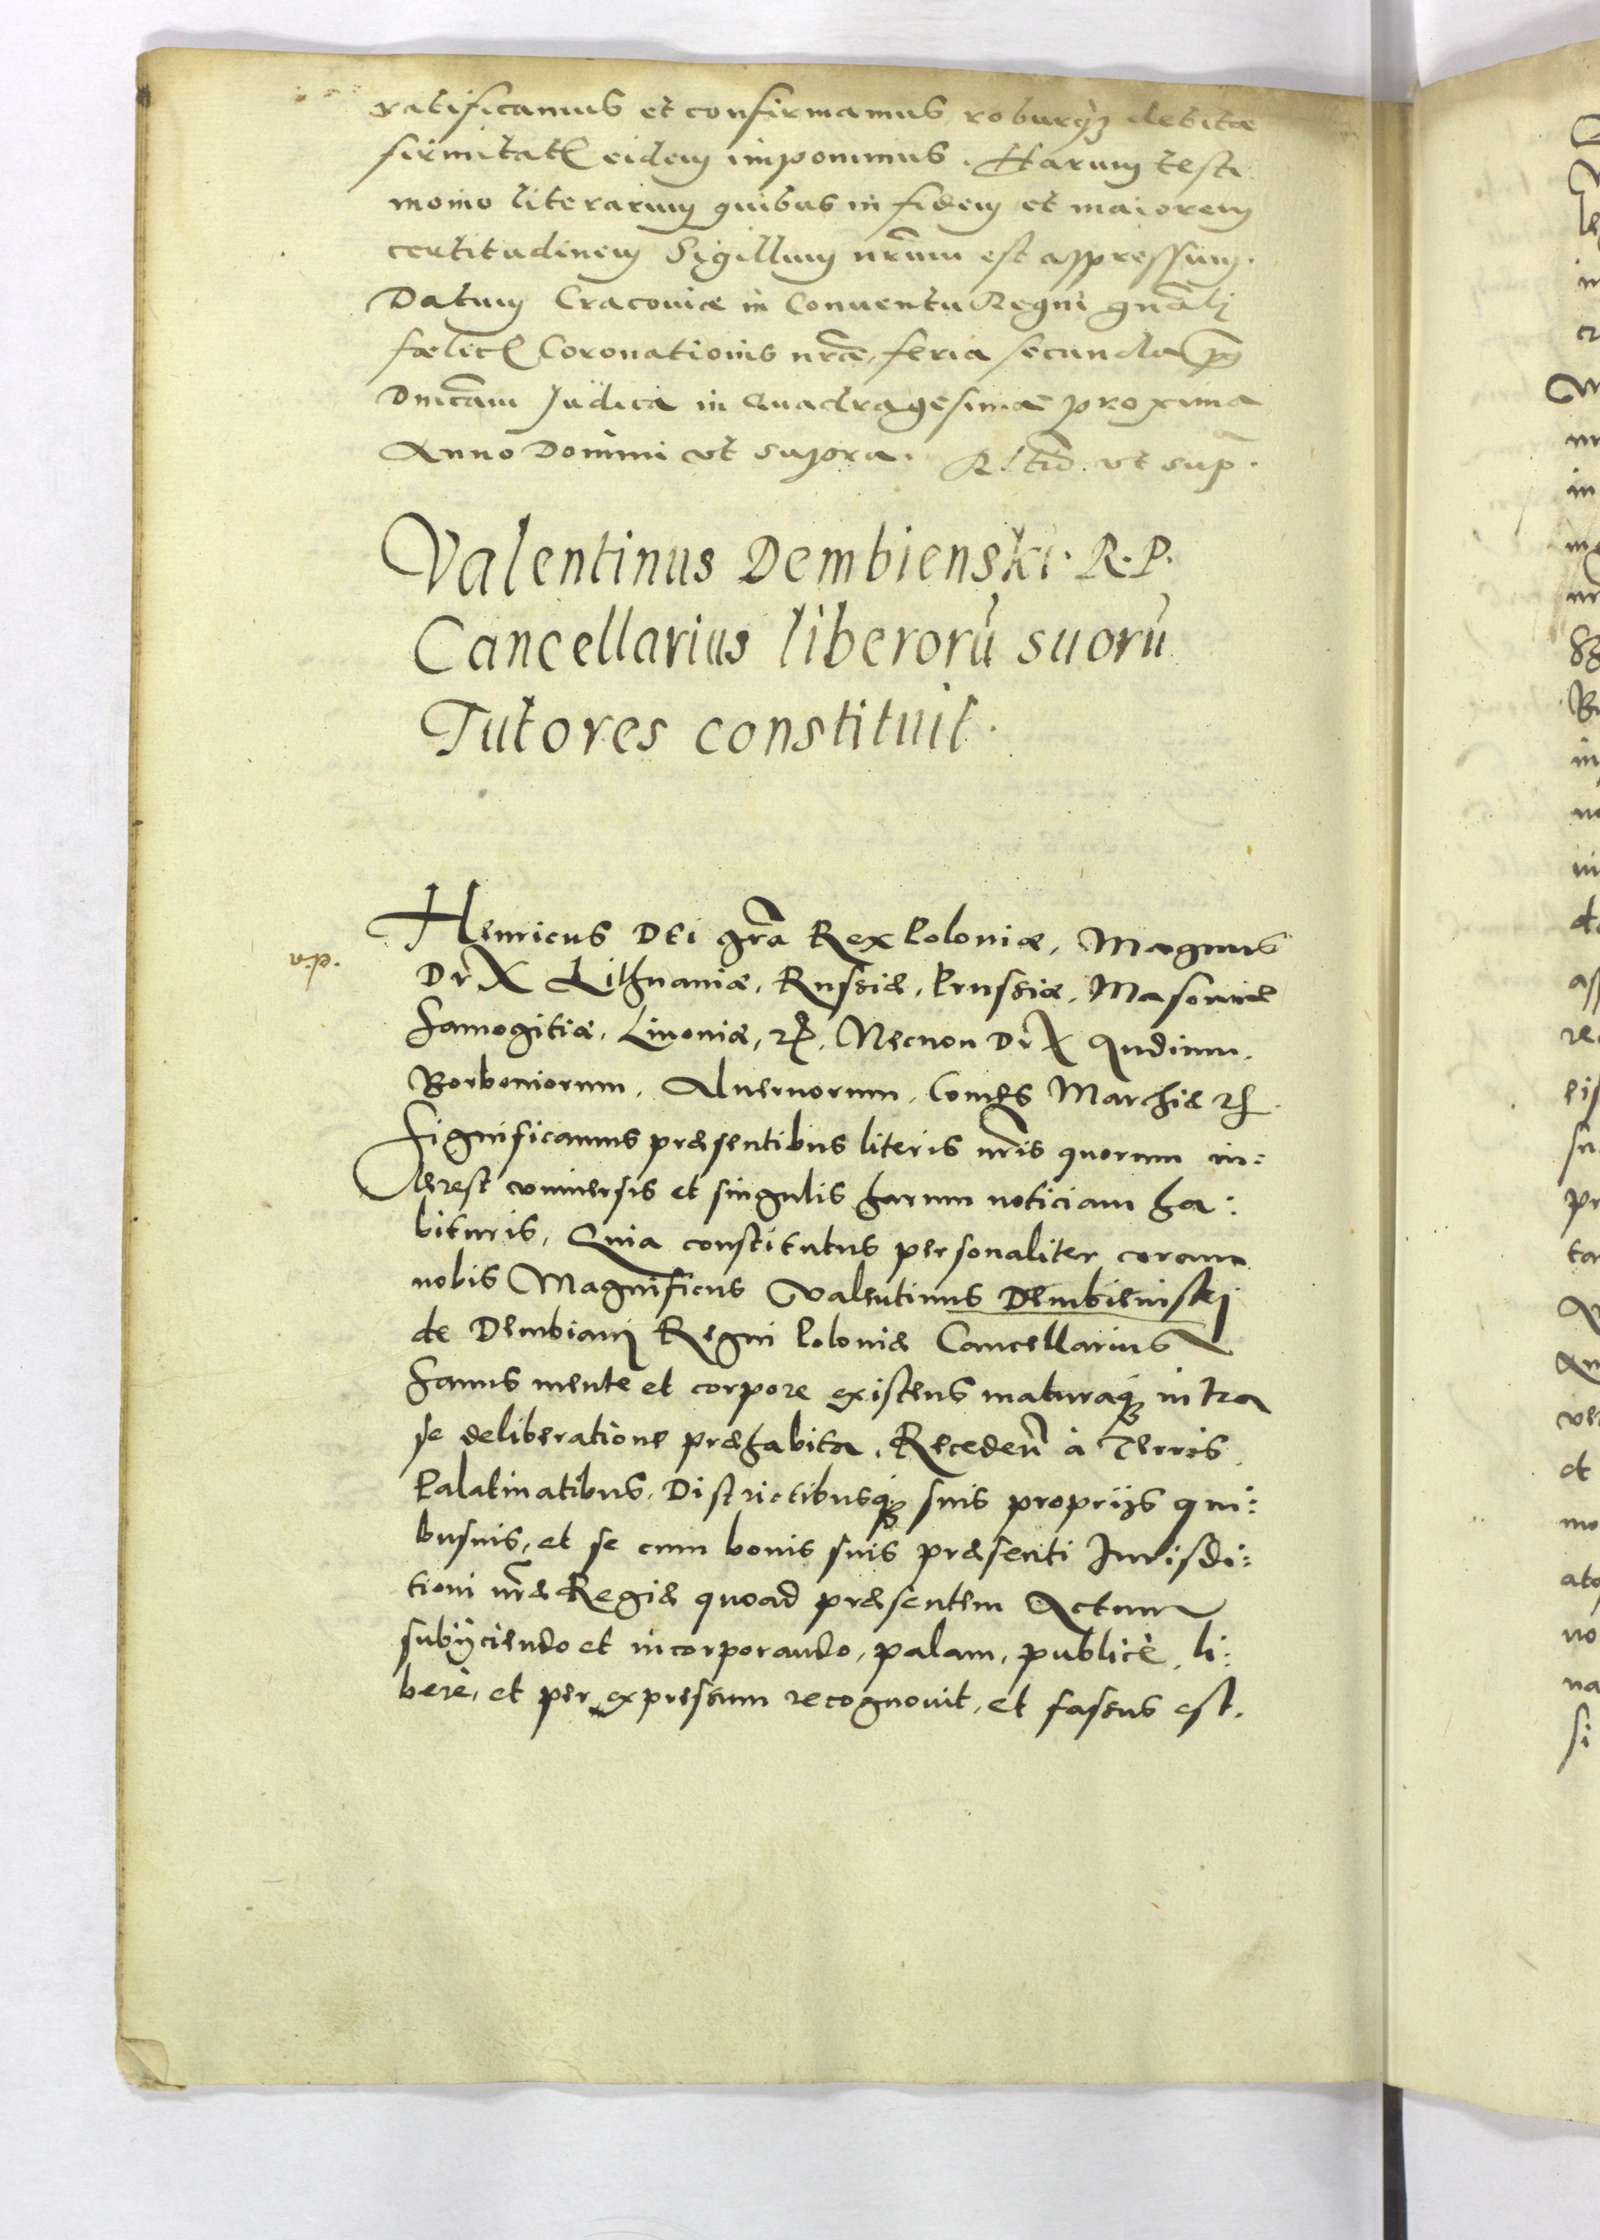 ratificamus et confirmamus, roburq₃ debitæ
firmitatꝭ eidem imponimus. Harum testi
monio literarum quibus in fidem et maiorem
certitudinem Sigillum nr̃um est appressum.
Datum Cracoviæ in Conventu Regni gnãli
fœlicꝭ Coronationis nrãe, feria secunda
Dnicam Judica in Quadragesima proxima
Anno Domini ut supra. ut sup̃.
Valentinus Dembienski. R. P.
Cancellarius liberorũ suorũ
Tutores constituit.
Henricus DEI gr̃a Rex Poloniæ, Magnus
Dux Lithuaniæ, Russiæ, Prussiæ, Masoviæ
Samogitiæ, Livoniæ, ꝛc. Necnon Dux Andium.
Borboniorum, Alvernorum, Comes Marchiæ ꝛc.
Significamus præsentibus literis nr̃is quorum in:
terest vniuersis et singulis harum noticiam ha:
bituris, Quia constitutus personaliter coram
nobis Magnificus Valentinus Dembienskj
de Dembianÿ Regni Poloniæ Cancellarius
Sanus mente et corpore existens maturaq₃ intra
se deliberatione præhabita, Recedeñ à Terris
Palatinatibus, Districtibusq₃ suis proprijs qui:
busuis, et se cum bonis suis præsenti Jurisdi:
tioni nr̃æ Regiæ quoad præsentem Actum
subijciendo et incorporando, palam, publicè, li:
berè, et per expressum recognouit, et fassus est.